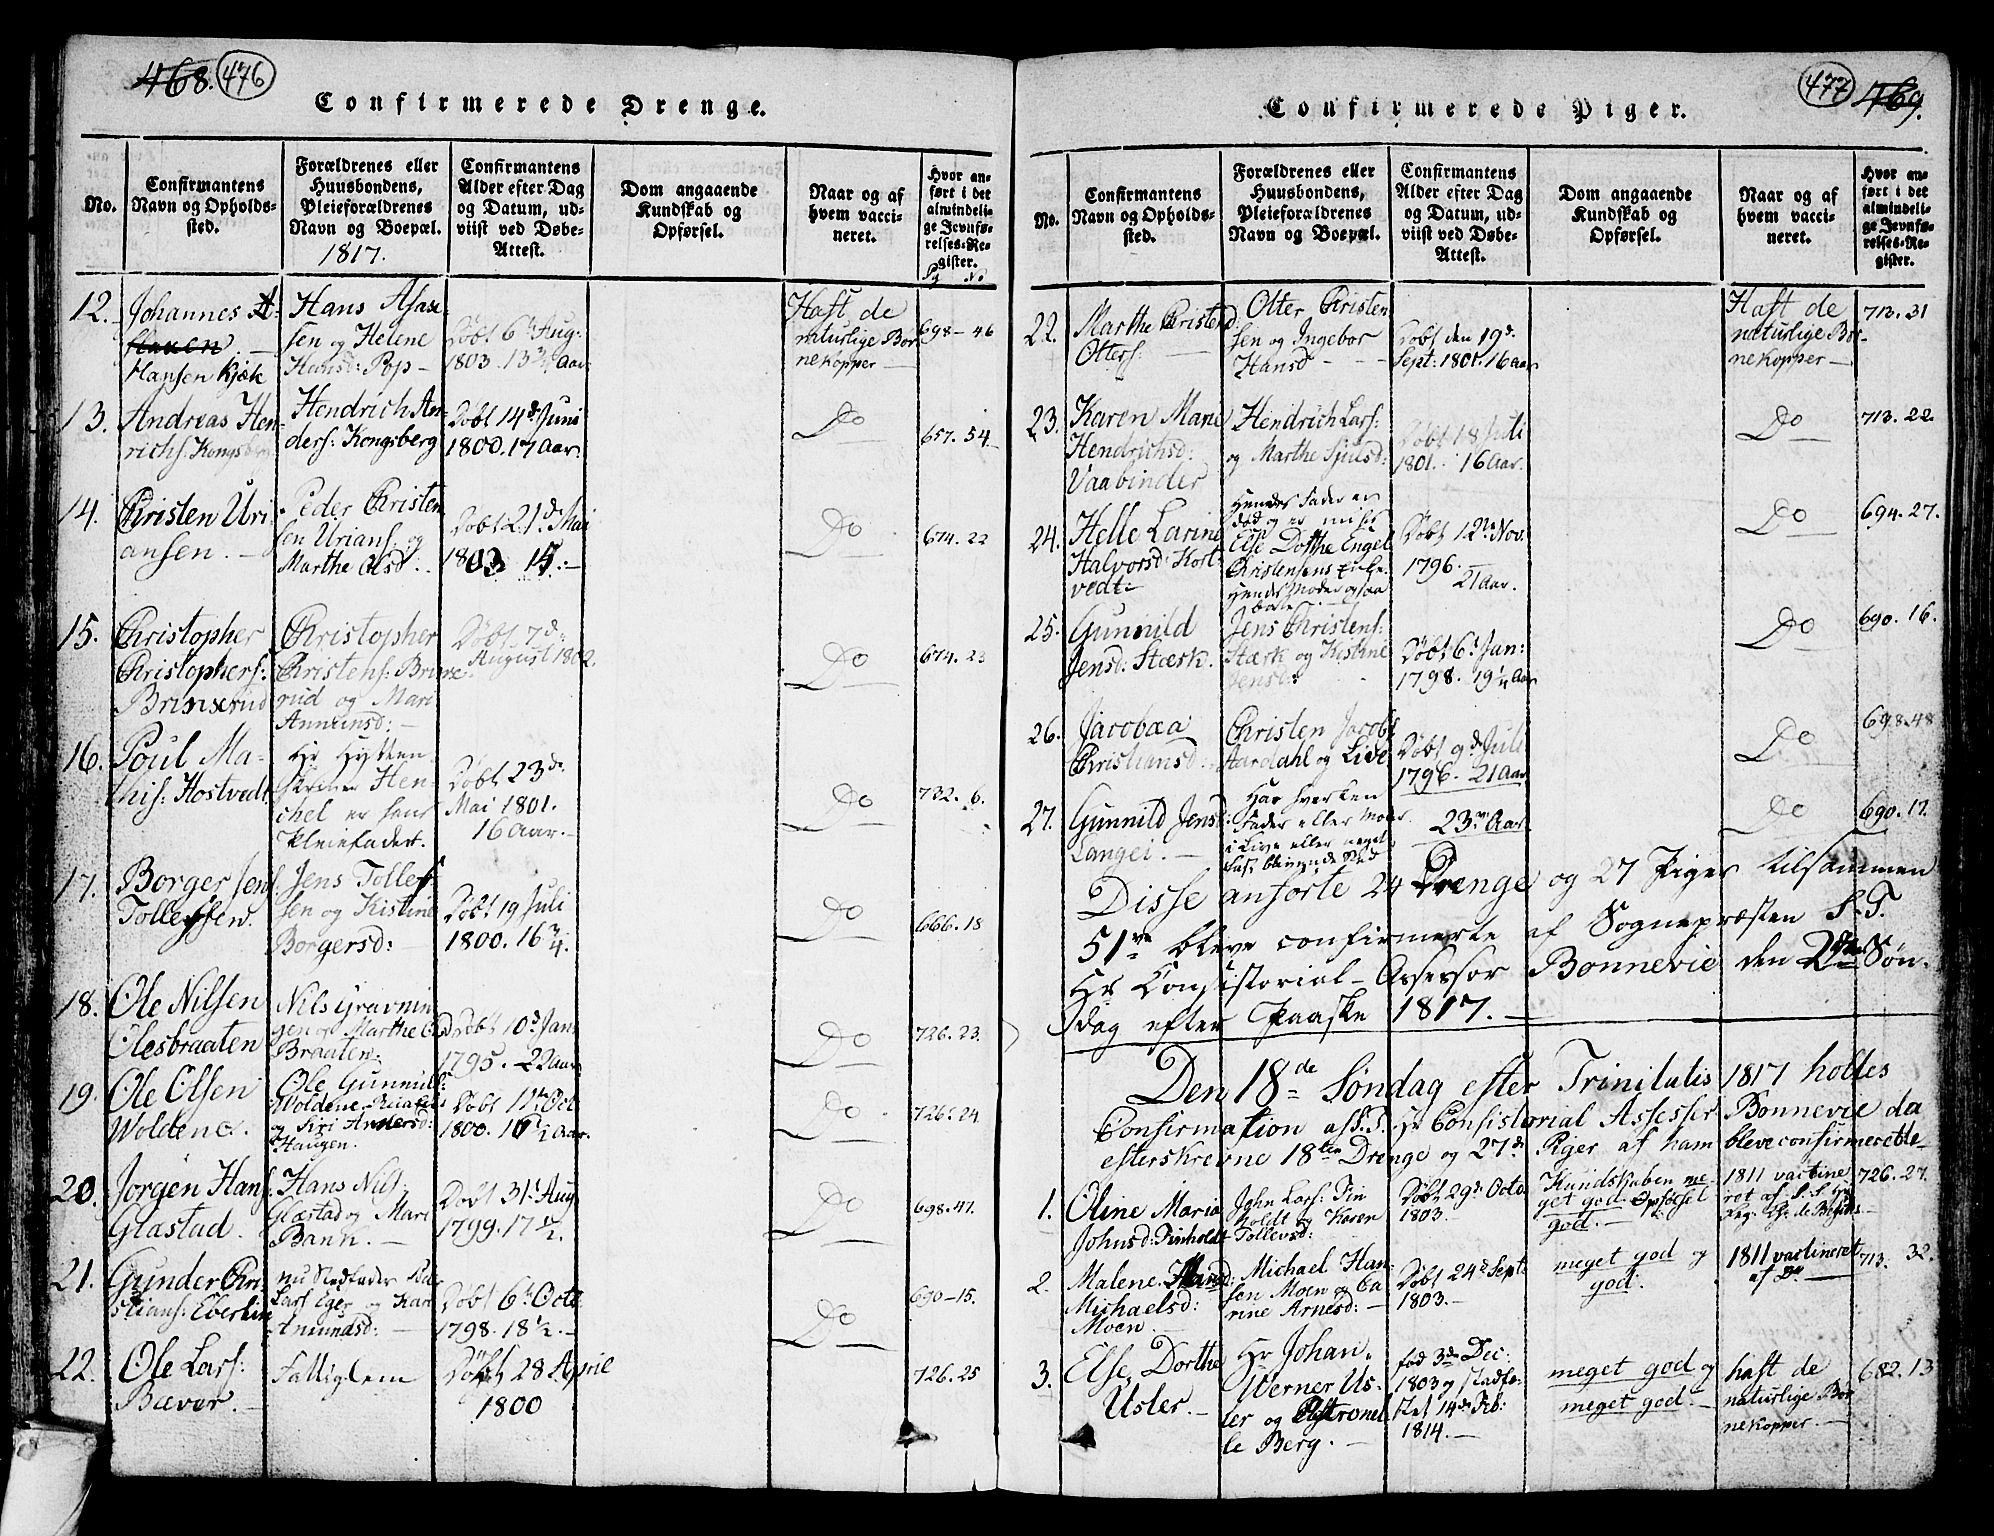 468. 476
Confirmerede Drenge.
No.
Confirmantens
Navn og Opholds-
sted.
Forældrenes eller
Huusbondens,
Pleieforældrenes
Navn og Boepæl.
1817.
Confirmantens
Alder efter Dag
og Datum, ud-
viist ved Døbe-
Attest.
Dom angaaende
Kundskab og
Opførsel.
Naar og af
hvem vacci-
neret.
Hvor an-
ført i det
almindeli-
ge Jevnfø-
relses-Re-
gister.
Pg No
12.
Johannes A-
Hansen Kjøk
Hans Asax
sen og Helene
Hansd: Pop-
Døbt 6te Aug:
1803. 13 3/4 Aar
Haft de
naturlige Bør
nekopper
698-46
13.
Andreas Hen-
richs: Kongsberg
Hendrich An-
ders: Kongsberg
Døbt 14de Juni
1800. 17 Aar.
Do
657. 54.
14.
Christen Uri-
ansen.
Peder Christen
sen Urians: og
Marthe Olsd:
Døbt 21de Mai
1803 15.
Do
674. 22
15.
Christopher
Christophers:
Brinserud
Christopher
Christens: Brinse
rud og Mari
Amunsd:
Døbt 7de
August 1802.
Do
674. 23
16.
Poul Ma-
this: Hostvedt
Hr Hytten
skriver Hen-
chel er hans
Pleiefader.
Døbt 23de
Mai 1801.
16 Aar.
Do
732. 6.
17.
Borger Jens
Tollefsen.
Jens Tollef
sen og Kistine
Borgersd:
Døbt 19 Juli
1800. 16 3/4.
Do
666. 18
18.
Ole Nilsen
Olesbraaten
Nils Gravnin
gen og Marthe
Braaten.
Døbt 10de Jan
1795. 22 Aar
Do
726. 23.
19.
Ole Olsen
Woldene.
Ole Gunnuls:
Woldene
og Siri Andersd:
Haugen.
Døbt Oct
1800. 16 1/2 Aar.
Do
726. 24
20.
Jørgen Hans
Glastad.
Hans Nils:
Glæstad og Mari
Bann.
Døbt 31te Aug
1799. 17 1/2.
Do
698. 47.
21.
Gunder Chri-
stians: Eberlin
nu Stedfader Peder
Lars Eger og Kari
Amundsd:
Døbt 6te Octo
1798. 18 1/2.
Do
690-15.
22.
Ole Lars:
Bæver.
Fattiglem
Døbt 28 April
1800
726. 25
477 469.
Confirmerede Piger.
No.
Confirmantens
Navn og Opholds-
sted.
Forældrenes eller
Huusbondens,
Pleieforældrenes
Navn og Boepæl.
Confirmantens
Alder efter Dag
og Datum, ud-
viist ved Døbe-
Attest.
Dom angaaende
Kundskab og
Opførsel.
Naar og af
hvem vacci-
neret.
Hvor an-
ført i det
almindeli-
ge Jevnfø-
relses-Re-
gister.
22.
Marthe Christend
Otters:
Otter Christen
sen og Ingebor
Hansd
Døbt den 19de
Sept: 1801. 16 Aar
Haft de
naturlige Bør-
nekopper
713. 31
23.
Karen Marie
Hendrichsd:
Vaabinder
Hendrich Lars:
og Marthe Sjulsd:
Døbt 18 Juli
1801. 16 Aar.
Do
713. 22
24.
Helle Larine
Halvorsd: Kort-
vedt
Hendes Fader er
død og er nu hos
Else Dorthe Engel
Christensens Enke.
Hendes Moder ogsaa
borte.
Døbt 12te Nov.
1796.
21 Aar.
Do
694. 27.
25.
Gunnild
Jensd: Stærk.
Jens Christens:
Stærk og Kistine
Jensd:
Døbt 6te Jan:
1798. 19 1/4 Aar
Do
690. 16.
26.
Jacobæa
Christiansd:
Christen Jacobs
Aardahl og Live
Døbt 9de Juli
1796. 21 Aar
Do
698. 48
27.
Gunnild Jensd:
Langei.
Har hverken
Fader eller Moer
i Live eller noget
fast blivende Sted
23 Aar
Do
690. 17.
Disse anførte 24 Drenge og 27 Piger tilsammen
51ve bleve confirmerte af Sognepræsten S. T.
Hr Consistorial-Assessor Bonnevie den 2den Søn-
dag efter Paaske 1817.
Den 18de Søndag efter Trinitatis 1817 holtes
Confirmation af S. T. Hr Consistorial Assessor Bonnevie da
efterskrevne 18ten Drenge og 27de Piger af ham bleve confirmerede
1.
Oline Maria
Johnsd: Tinholdt
John Lars: Tin
holdt og Karen
Tollevsd:
Døbt 29de Octo
1803.
Kundskaben me-
get god. Opførsel
god.
1811 vactine
ret af S. T. Hr
726. 27.
2.
Malene
Michaelsd:
Moen.
Michael Han-
sen Moen og Ca
rine Arnesd:
Døbt 24de Sept
1803.
meget god og
god.
1811 vactineret
af Do
713. 32.
3.
Else Dorthe
Usler.
Hr Johan
Werner Us-
ler og Petronel
le Berg.
fød 3de Dec:
1803 og stadfæ-
stet 14de Feb:
1814.
meget god og
meget god.
haft de
naturlige Bør
nekopper.
682. 13